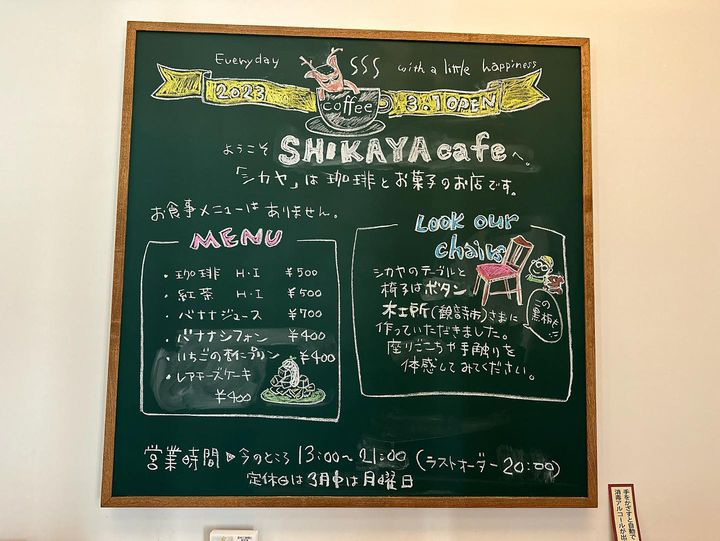 Everyday SSS with a little happiness
2023. coffee 3.1 OPEN
ようこそ SHIKAYA cafeへ。
「シカヤ」は珈琲とお菓子のお店です。
お食事メニューはありません。
MENU
・珈琲 H・I ¥500
・紅茶 H・I ¥500
・バナナジュース ¥700
・バナナシフォン ¥400
・いちごの杏仁プリン ¥400
・レアチーズケーキ
¥400
Look our
chairs
シカヤのテーブルと
椅子はボタン
木工所(観音寺市)さまに
作っていただきました。
座りごこちや手触りを
体感してみてください。
この
黒板も
営業時間 ▶ 今のところ 13:00~21:00 (ラストオーダー 20:00)
定休日は3月中は月曜日
手をかざすと自動で
消毒アルコールが出